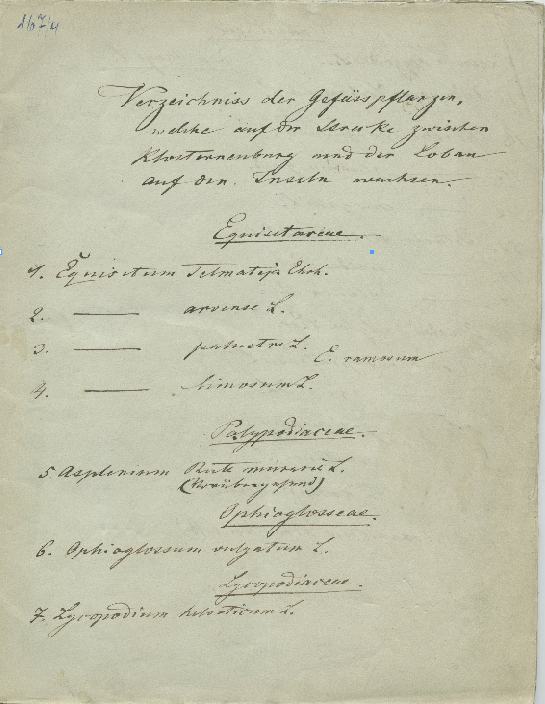 Verzeichniss der Gefässpflanzen,
welche auf der Strecke zwischen
Klosterneuburg und der Lobau
auf den Inseln wachsen.
Equisetaceae.
1. Equisetum Telmateja Ehrh.
2. —— arvense L.
3. —— palustre L. E. ramosum
4. —— limosum L.
Polypodiaceae.
5 Asplenium Ruta muraria L.
Ophioglosseae.
6. Ophioglossum vulgatum L.
Lycopodiaceae.
7. Lycopodium helveticum L.